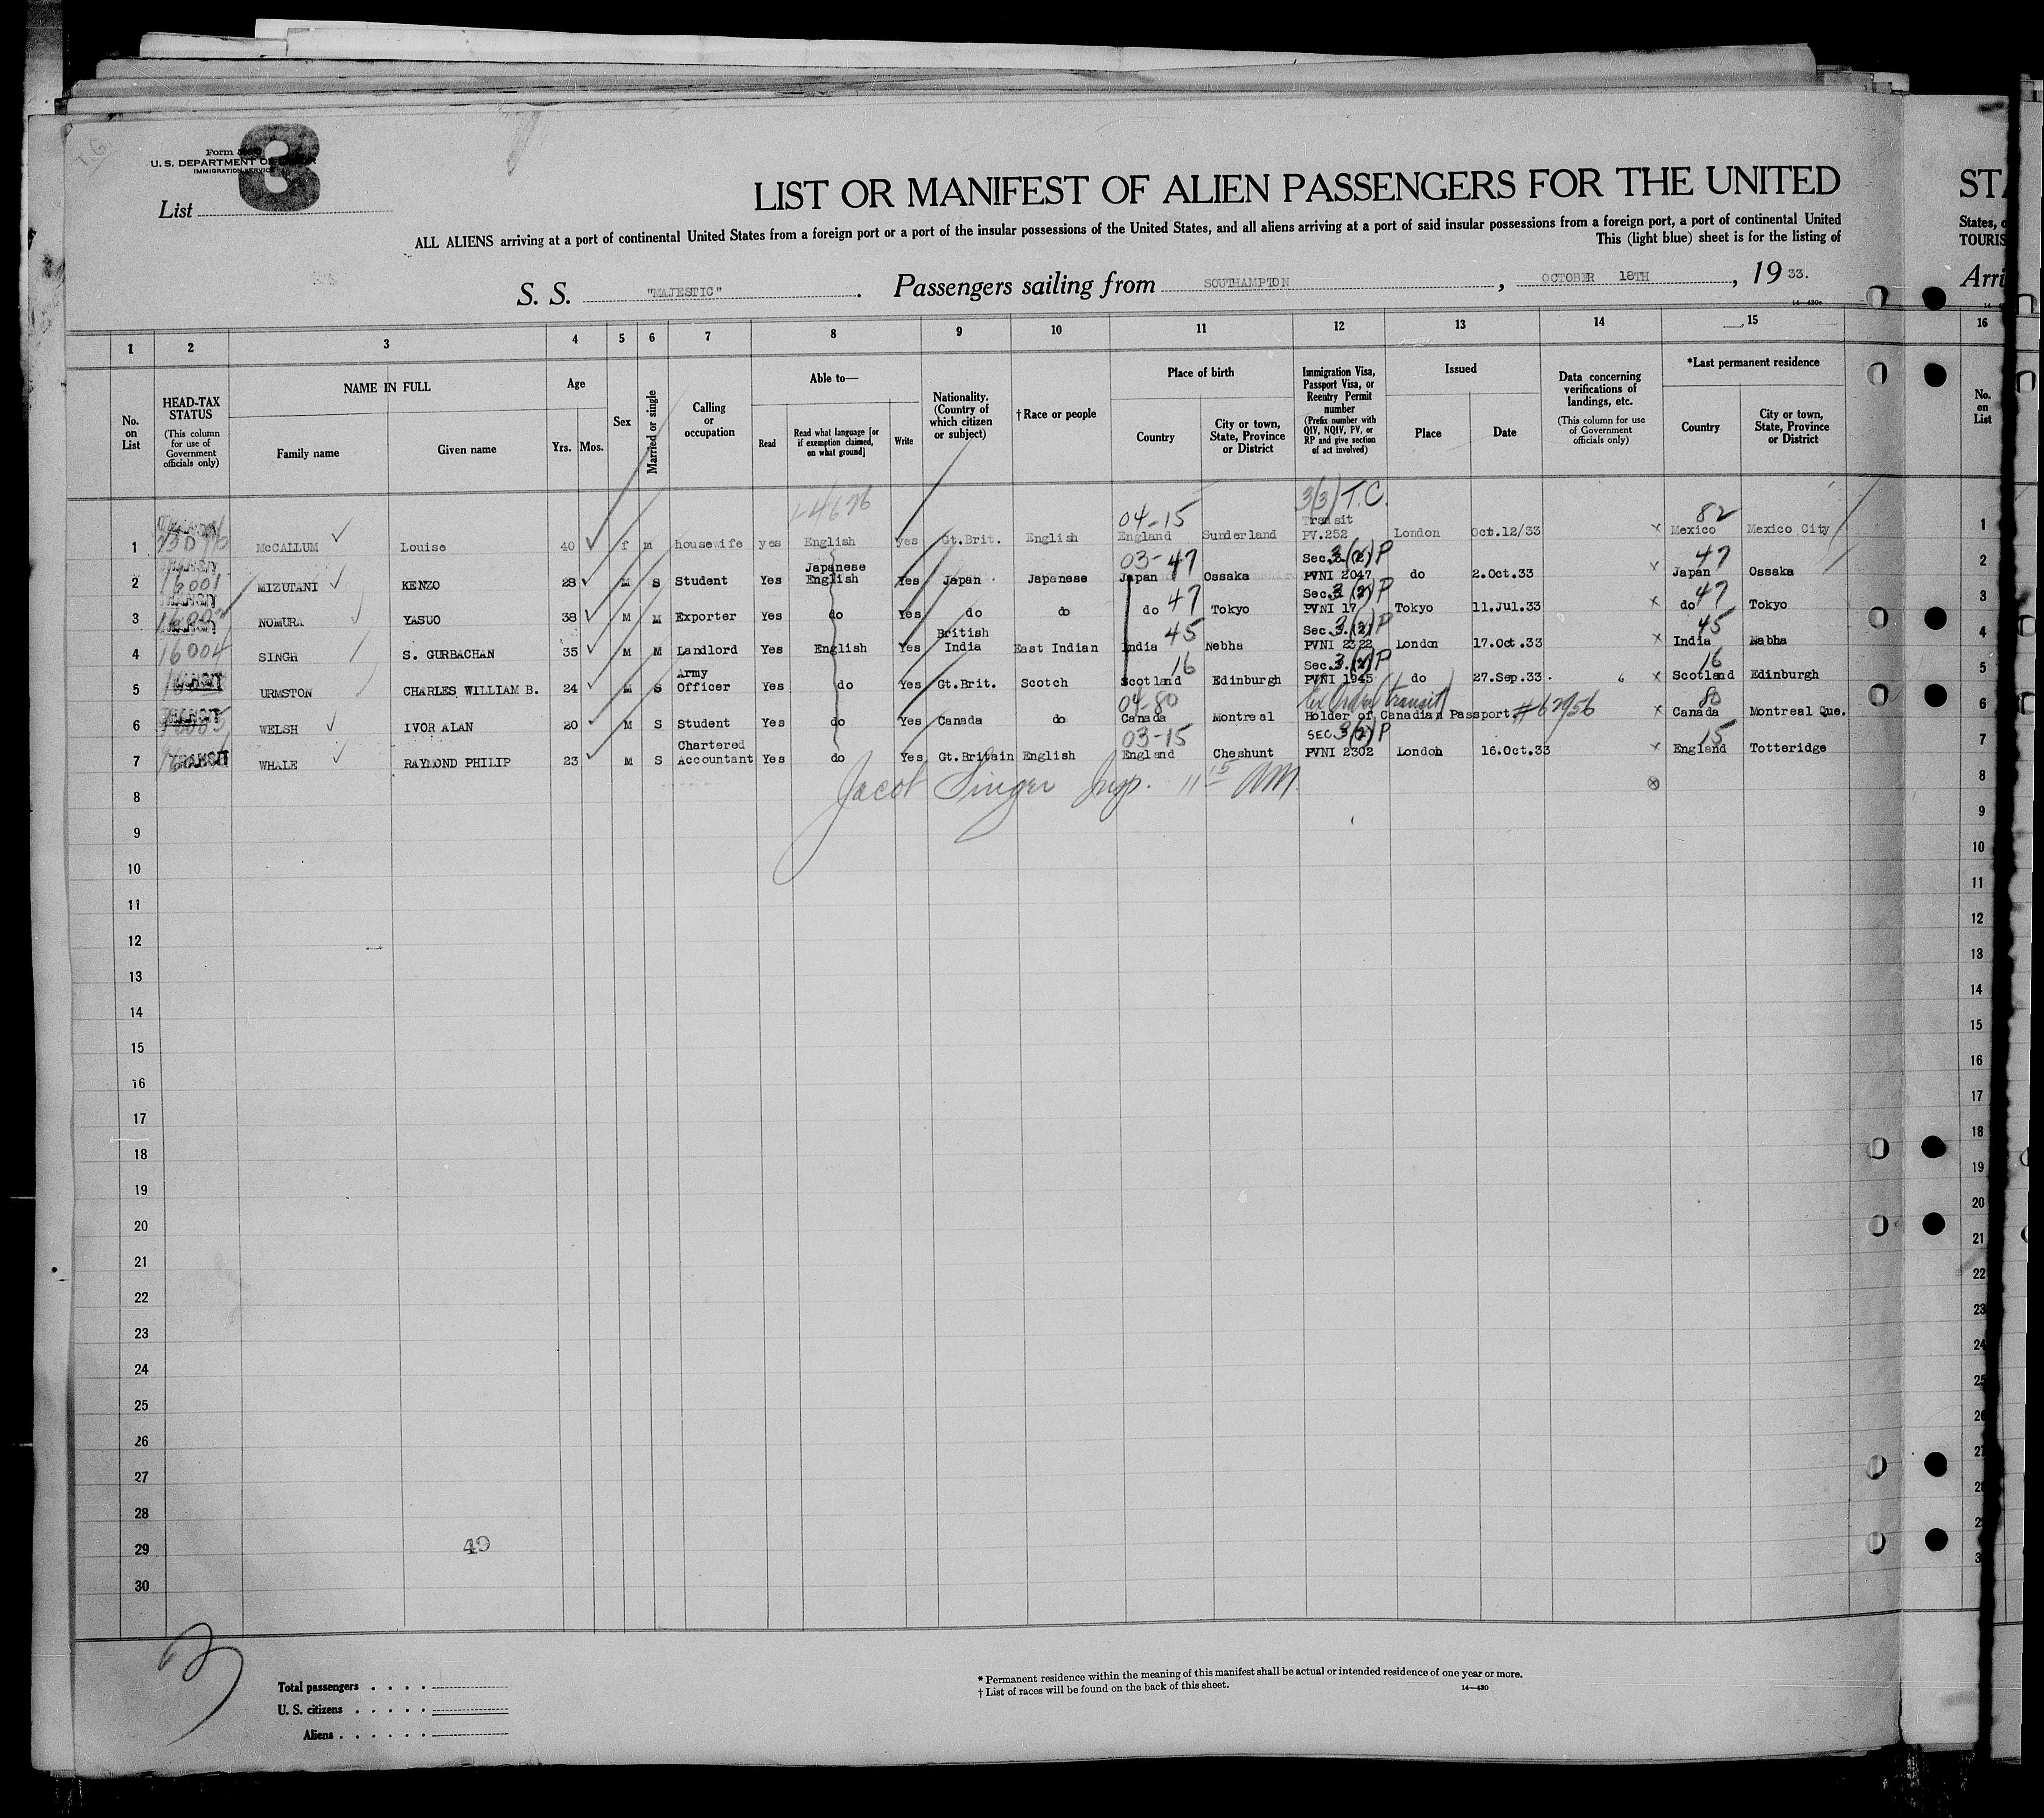 3
Form
U. S. DEPARTMENT OF
IMMIGRATION SERVICE
List
LIST OR MANIFEST OF ALIEN PASSENGERS FOR THE UNITED
ALL ALIENS arriving at a port of continental United States from a foreign port or a port of the insular possessions of the United States, and all aliens arriving at a port of said insular possessions from a foreign port, a port of continental United
This (light blue) sheet is for the listing of
S. S. "MAJESTIC". Passengers sailing from SOUTHAMPTON, OCTOBER 18TH, 19 33.
STA
States, o
TOURIS
Arri
1 2 3 4 5 6 7 8 9 10 11 12 13 14 15 16
No. on List
HEAD-TAX STATUS (This column for use of Government officials only)
NAME IN FULL
Family name
Given name
Age
Yrs. Mos.
Sex
Married or single
Calling or occupation
Able to—
Read
Read what language [or if exemption claimed, on what ground]
Write
Nationality. (Country of which citizen or subject)
† Race or people
Place of birth
Country
City or town, State, Province or District
Immigration Visa, Passport Visa, or Reentry Permit number (Prefix number with QIV, NQIV, PV, or RP and give section of act involved)
Issued
Place
Date
Data concerning verifications of landings, etc. (This column for use of Government officials only)
*Last permanent residence
Country
City or town, State, Province or District
No. on List
3(3) T.C.
04-15 82
1 McCALLUM Louise 40 f m housewife yes English yes Gt.Brit. English England Sunderland Transit PV.252 London Oct.12/33 x Mexico Mexico City 1
03-47 3(2)P 47
2 16001 MIZUTANI KENZO 28 M S Student Yes Japanese English Yes Japan Japanese Japan Ossaka Sec. PVNI 2047 do 2.Oct.33 x Japan Ossaka 2
47 3(2)P 47
3 NOMURA YASUO 38 M M Exporter Yes do Yes do do do Tokyo Sec. PVNI 17 Tokyo 11.Jul.33 x do Tokyo 3
45 3(2)P 45
4 16004 SINGH S. GURBACHAN 35 M M Landlord Yes English Yes British India East Indian India Nebha Sec. PVNI 2322 London 17.Oct.33 x India Nabha 4
16 3.(2)P 16
5 TRANSIT URMSTON CHARLES WILLIAM B. 24 M S Army Officer Yes do Yes Gt.Brit. Scotch Scotland Edinburgh Sec. PVNI 1945 do 27.Sep.33 x Scotland Edinburgh 5
04-80 transit 80
6 TRANSIT WELSH IVOR ALAN 20 M S Student Yes do Yes Canada do Canada Montreal Holder of Canadian Passport x Canada Montreal Que. 6
03-15 3(2)P 15
7 TRANSIT WHALE RAYMOND PHILIP 23 M S Chartered Accountant Yes do Yes Gt.Britain English England Cheshunt SEC PVNI 2302 London 16.Oct.33 x England Totteridge 7
8 Jacob Singer Insp. 11 15 AM 8
9 9
10 10
11 11
12 12
13 13
14 14
15 15
16 16
17 17
18 18
19 19
20 20
21 21
22 22
23 23
24 24
25 25
26 26
27 27
28 28
29 49
30
3
Total passengers . . . .
U. S. citizens . . . . .
Aliens . . . . . .
* Permanent residence within the meaning of this manifest shall be actual or intended residence of one year or more.
† List of races will be found on the back of this sheet.
14—430